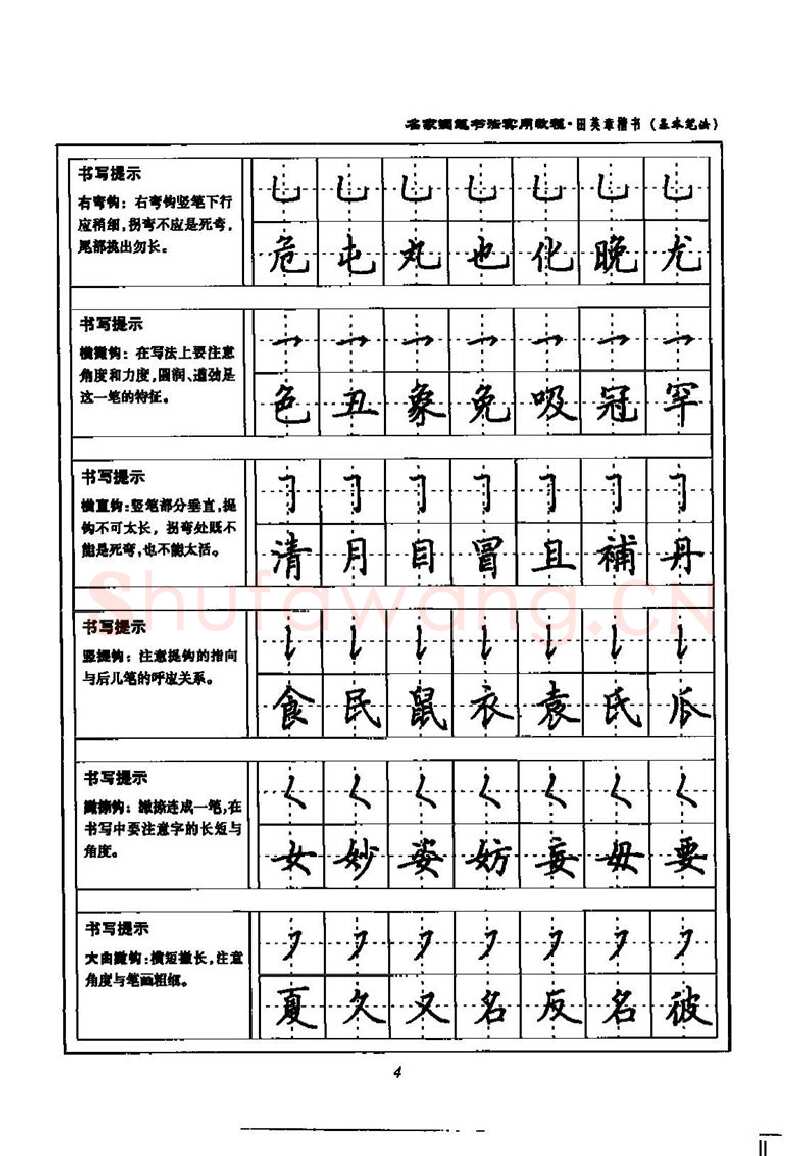 名家钢笔书法实用教程·田英章楷书(基本笔法)
书写提示
右弯钩:右弯钩竖笔下行
应稍细,拐弯不应是死弯,
尾部挑出勿长。
乚 乚 乚 乚 乚 乚 乚
危 屯 丸 也 化 晚 尤
书写提示
横撇钩:在写法上要注意
角度和力度,圆润、遒劲是
这一笔的特征。
乛 乛 乛 乛 乛 乛 乛
色 丑 象 免 吸 冠 罕
书写提示
横直钩:竖笔部分垂直,提
钩不可太长,拐弯处既不
能是死弯,也不能太活。
㇆ ㇆ ㇆ ㇆ ㇆ ㇆ ㇆
清 月 目 冒 且 補 丹
书写提示
竖提钩:注意提钩的指向
与后几笔的呼应关系。
㇙ ㇙ ㇙ ㇙ ㇙ ㇙ ㇙
食 民 鼠 衣 袁 氏 瓜
书写提示
撇捺钩:撇捺连成一笔,在
书写中要注意字的长短与
角度。
㇛ ㇛ ㇛ ㇛ ㇛ ㇛ ㇛
女 妙 姿 妨 妄 毋 要
书写提示
大曲撇钩:横短撇长,注意
角度与笔画粗细。
㇇ ㇇ ㇇ ㇇ ㇇ ㇇ ㇇
夏 久 又 名 反 名 彼
Shufawang.CN
4